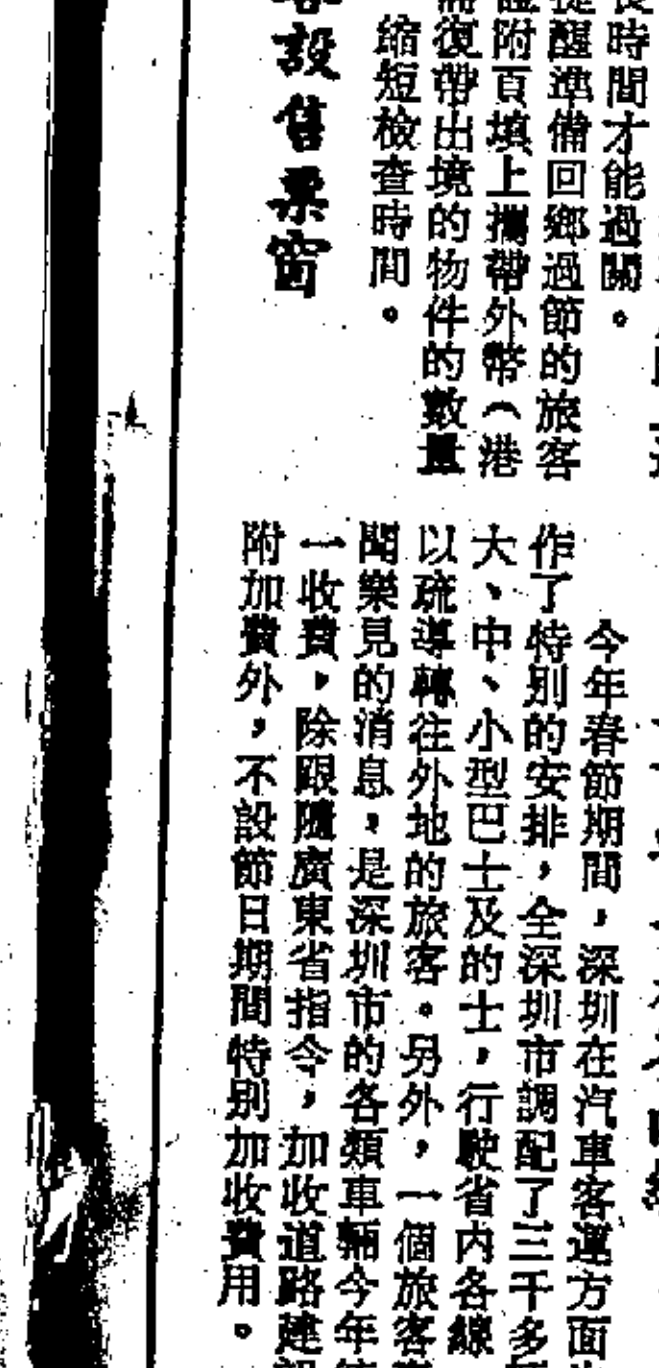 長時間才能過關。
提醒準備回鄉過節的旅客
證附頁填上攜帶外幣（港
需復帶出境的物件的數量
縮短檢查時間。
設售票窗
今年春節期間，深圳在汽車客運方面
作了特別的安排，全深圳市調配了三千多
大、中、小型巴士及的士，行駛省內各線
以疏導轉往外地的旅客。另外，一個旅客
聞樂見的消息，是深圳市的各類車輛今年
一收費，除跟隨廣東省指令，加收道路建
附加費外，不設節日期間特別加收費用。